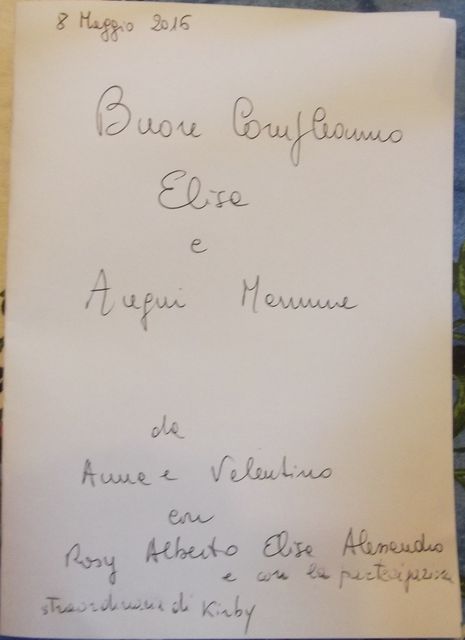 8 Maggio 2016
Buon Compleanno
Elisa
e
Auguri Mamme
da
Anna e Valentino
con
Rosy Alberto Elisa Alessandro
e con la partecipazione
straordinaria di Kirby